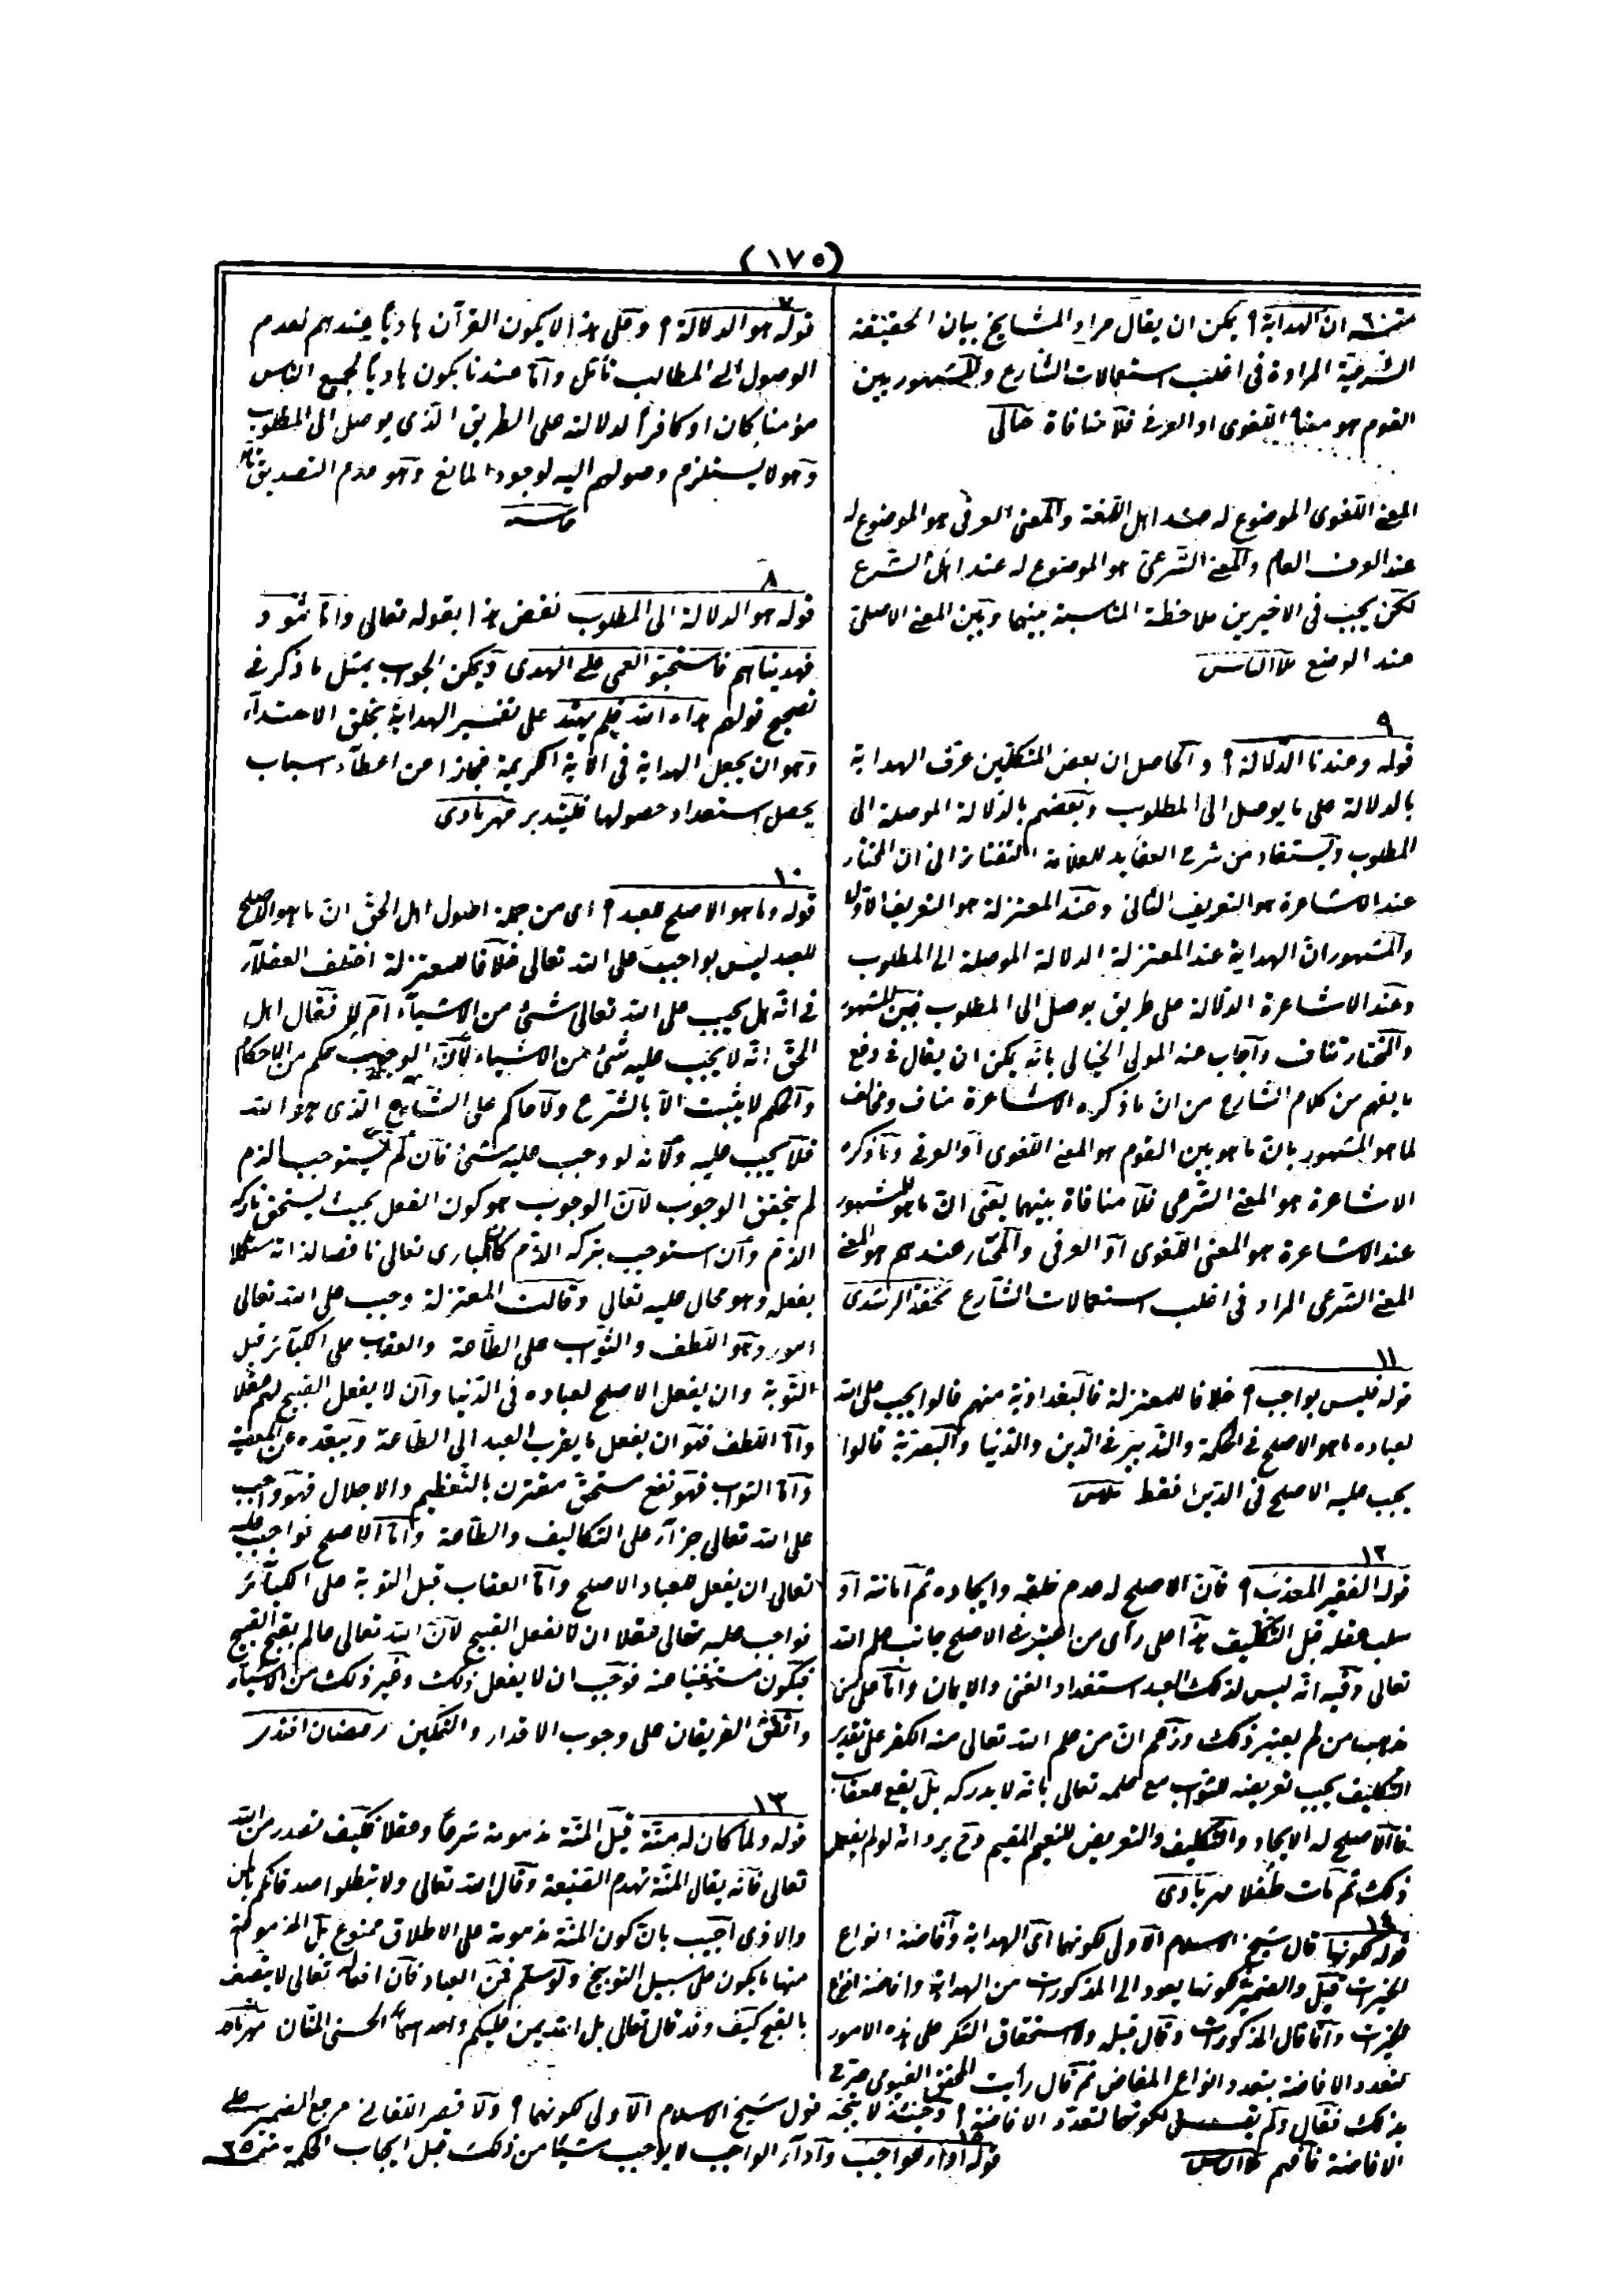 (١٧٥)
ان الهداية ؟ يمكن ان يقال مراد المشايخ بيان الحقيقة
الشرعية المرادة فى اغلب استعمالات الشارع والمشهور بين
القوم هو معناه اللغوى او العرفى فلا منافاة خيالى
المعنى اللغوى الموضوع له عند اهل اللغة والمعنى العرفى هو الموضوع له
عند العرف العام والمعنى الشرعى هو الموضوع له عند اهل الشرع
لكن يجب فى الاخيرين ملاحظة المناسبة بينهما وبين المعنى الاصلى
عند الوضع
٩
قوله وعندنا الدلالة ؟ والحاصل ان بعض المتكلمين عرف الهداية
بالدلالة على ما يوصل الى المطلوب وبعضهم بالدلالة الموصلة الى
المطلوب ويستفاد من شرح العقايد للعلامة التفتازانى ان المختار
عند الاشاعرة هو التعريف الثانى وعند المعتزلة هو التعريف الاول
والمشهور ان الهداية عند المعتزلة الدلالة الموصلة الى المطلوب
وعند الاشاعرة الدلالة على طريق يوصل الى المطلوب فبين المشهور
والمختار تناف واجاب عنه المولى الخيالى بانه يمكن ان يقال فى دفع
ما يفهم من كلام الشارح من ان ما ذكره الاشاعرة مناف ومخالف
لما هو المشهور بان ما هو بين القوم هو المعنى اللغوى او العرفى وما ذكره
الاشاعرة هو المعنى الشرعى فلا منافاة بينهما يعنى ان ما هو المشهور
عند الاشاعرة هو المعنى اللغوى او العرفى والمختار عندهم هو المعنى
المعنى الشرعى المراد فى اغلب استعمالات الشارع تحفة الرشدى
١١
قوله فليس بواجب ؟ خلافا للمعتزلة فالبغدادية منهم قالوا يجب على الله
لعباده ما هو الاصلح فى الحكمة والتدبير فى الدين والدنيا والبصرية قالوا
يجب عليه الاصلح فى الدين فقط
١٢
قوله الفقير المعذب ؟ فان الاصلح له عدم خلقه وايجاده ثم اماتته او
سلب عقله قبل التكليف هذا على رأى من اعتبر فى الاصلح جانب علم الله
تعالى وفيه انه ليس لذلك العبد استعداد الغنى والايمان واما على
مذهب من لم يعتبر ذلك وزعم ان من علم الله تعالى منه الكفر على تقدير
التكليف يجب تعريضه للثواب مع علمه تعالى بانه لا يدركه بل يقع للعقاب
فالاصلح له الايجاد والتكليف والتعريض للنعيم المقيم وح يرد انه لو لم يفعل
ذلك ثم مات طفلا مهربادى
١٤
قوله لكونها قال شيخ الاسلام الاولى لكونهما اى الهداية وافاضة انواع
الخيرات قيل والضمير لكونها يعود الى المذكورات من الهداية وافاضة انواع
الخيرات وانما قال المذكورات وقال قبله ولاستحقاق الشكر على هذه الامور
لتعدد الافاضة بتعدد انواع المفاض ثم قال رأيت المحقق
بذلك فقال ولم يقل لكونهما لتعدد الافاضة ؟ وحينئذ لا يتجه قول شيخ الاسلام الاولى لكونهما ؟ ولا قصر اللقانى مرجع الضمير على
الافاضة فافهم
٧
قوله هو الدلالة ؟ وعلى هذا لا يكون القرآن هاديا عندهم لعدم
الوصول الى المطالب تأمل واما عندنا يكون هاديا لجميع الناس
مؤمنا كان او كافرا لدلالته على الطريق الذى يوصل الى المطلوب
وهو لا يستلزم وصولهم اليه لوجود المانع وهو عدم التصديق
٨
قوله هو الدلالة الى المطلوب نقض هذا بقوله تعالى واما ثمود
فهديناهم فاستحبوا العمى على الهدى ويمكن الجواب بمثل ما ذكر فى
تصحيح قولهم هداه الله فلم يهتد على تفسير الهداية بخلق الاهتداء
وهو ان يجعل الهداية فى الآية الكريمة مجازا عن اعطاء اسباب
يحصل استعداد حصولها فليتدبر مهربادى
١٠
قوله وما هو الاصلح للعبد ؟ اى من جملة اصول اهل الحق ان ما هو الاصلح
للعبد ليس بواجب على الله تعالى خلافا للمعتزلة اختلف العقلاء
فى انه هل يجب على الله تعالى شئ من الاشياء ام لا فقال اهل
الحق انه لا يجب عليه شئ من الاشياء لان الوجوب حكم من الاحكام
والحكم لا يثبت الا بالشرع ولا حاكم على الشارع الذى هو الله
فلا يجب عليه ولانه لو وجب عليه شئ فان لم يستوجب الذم
لم يتحقق الوجوب لان الوجوب هو كون الفعل بحيث يستحق تاركه
الذم وان استوجب بتركه الذم كان البارى تعالى ناقصا لذاته مستكملا
بفعله وهو محال عليه تعالى وقالت المعتزلة وجب على الله تعالى
امور وهو اللطف والثواب على الطاعة والعقاب على الكبائر قبل
التوبة وان يفعل الاصلح لعباده فى الدنيا وان لا يفعل القبيح لهم عقلا
واما اللطف فهو ان يفعل ما يقرب العبد الى الطاعة ويبعده عن المعصية
واما الثواب فهو نفع مستحق مقترن بالتعظيم والاجلال فهو واجب
على الله تعالى جزاء على التكاليف والطاعة واما الاصلح فواجب عليه
تعالى ان يفعل للعباد الاصلح واما العقاب قبل التوبة على الكبائر
فواجب عليه تعالى عقلا ان لا يفعل القبيح لان الله تعالى عالم بقبح القبيح
فيكون مستغنيا عنه فوجب ان لا يفعل ذلك وغير ذلك من الاشياء
واتفق الفريقان على وجوب الاقدار والتمكين رمضان افندى
١٣
قوله ولما كان له منة قيل المنة مذمومة شرعا وعقلا فكيف تصدر من الله
تعالى فانه يقال المنة تهدم الصنيعة وقال الله تعالى ولا تبطلوا صدقاتكم بالمن
والاذى اجيب بان كون المنة مذمومة على الاطلاق ممنوع بل المذمومة
منها ما يكون على سبيل التوبيخ ولو سلم فمن العباد فان افعاله تعالى لا يتصف
بالقبح كيف وقد قال تعالى بل الله يمن عليكم واحد اسمائه الحسنى المنان
١٥
قوله اداء لواجب واداء الواجب لا يوجب شيئا من ذلك قبل ايجاب الحكمة